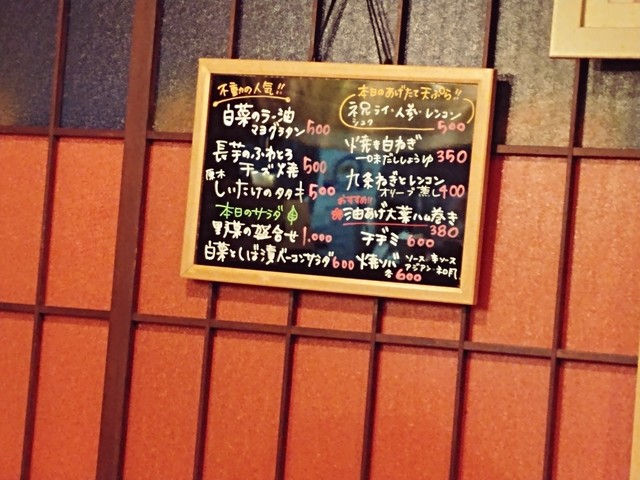 不動の人気!!
白菜のラー油
マヨグラタン 500
長芋のふわとろ
チーズ焼 500
原木
しいたけのタタキ 500
本日のサラダ
野菜の盛合せ 1,000
白菜としば漬ベーコンサラダ 600
本日のあげたて天ぷら!!
ライ・人参・レンコン
500
焼き白ねぎ
一味だししょうゆ 350
九条ねぎとレンコン
オリーブ蒸し 400
おすすめ!!
油あげ大葉ハム巻き
380
チヂミ 600
焼ソバ ソース・辛ソース
アジアン・和風
各600